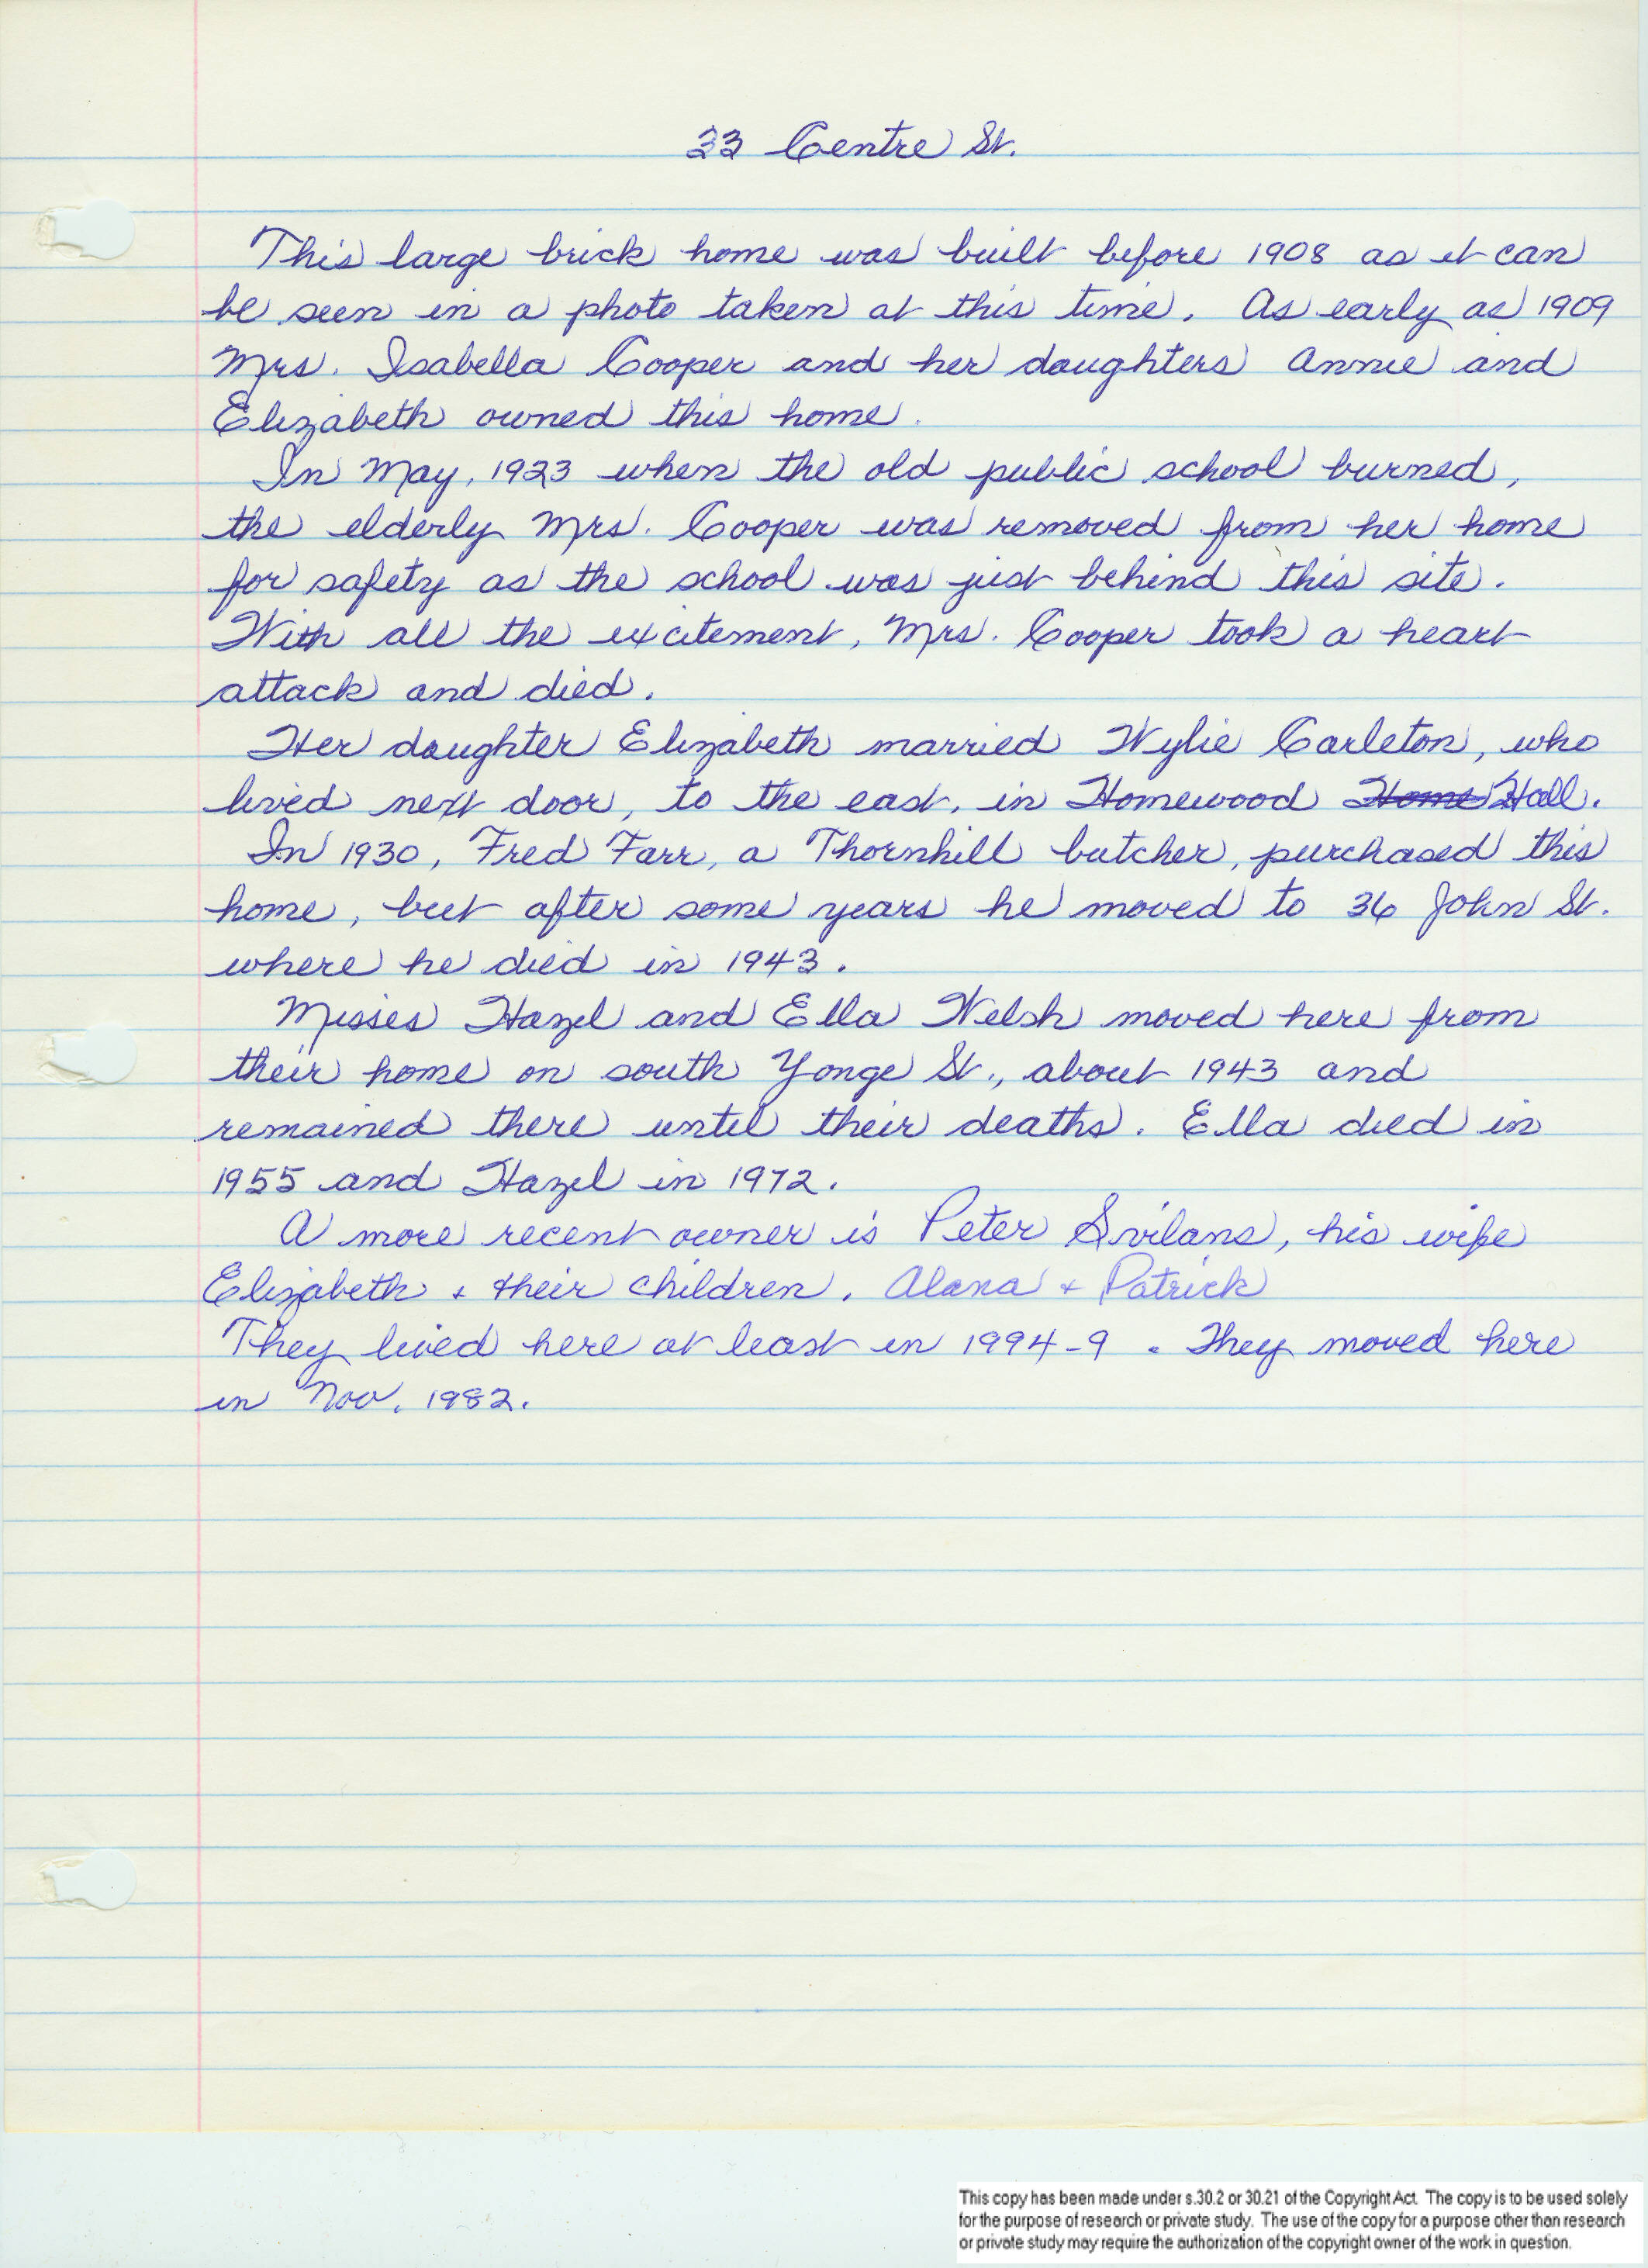 33 Centre St.
This large brick home was built before 1908 as it can
be seen in a photo taken at this time. As early as 1909
Mrs. Isabella Cooper and her daughters Annie and
Elizabeth owned this home.
In May, 1923 when the old public school burned,
the elderly Mrs. Cooper was removed from her home
for safety as the school was just behind this site.
With all the excitement, Mrs. Cooper took a heart
attack and died.
Her daughter Elizabeth married Wylie Carleton, who
lived next door, to the east, in Homewood Home Hall.
In 1930, Fred Farr, a Thornhill butcher, purchased this
home, but after some years he moved to 36 John St.
where he died in 1943.
Misses Hazel and Ella Welsh moved here from
their home on south Yonge St., about 1943 and
remained there until their deaths. Ella died in
1955 and Hazel in 1972.
A more recent owner is Peter Svilans, his wife
Elizabeth & their children. Alana & Patrick
They lived here at least in 1994-9. They moved here
in Nov. 1982.
This copy has been made under s.30.2 or 30.21 of the Copyright Act. The copy is to be used solely
for the purpose of research or private study. The use of the copy for a purpose other than research
or private study may require the authorization of the copyright owner of the work in question.